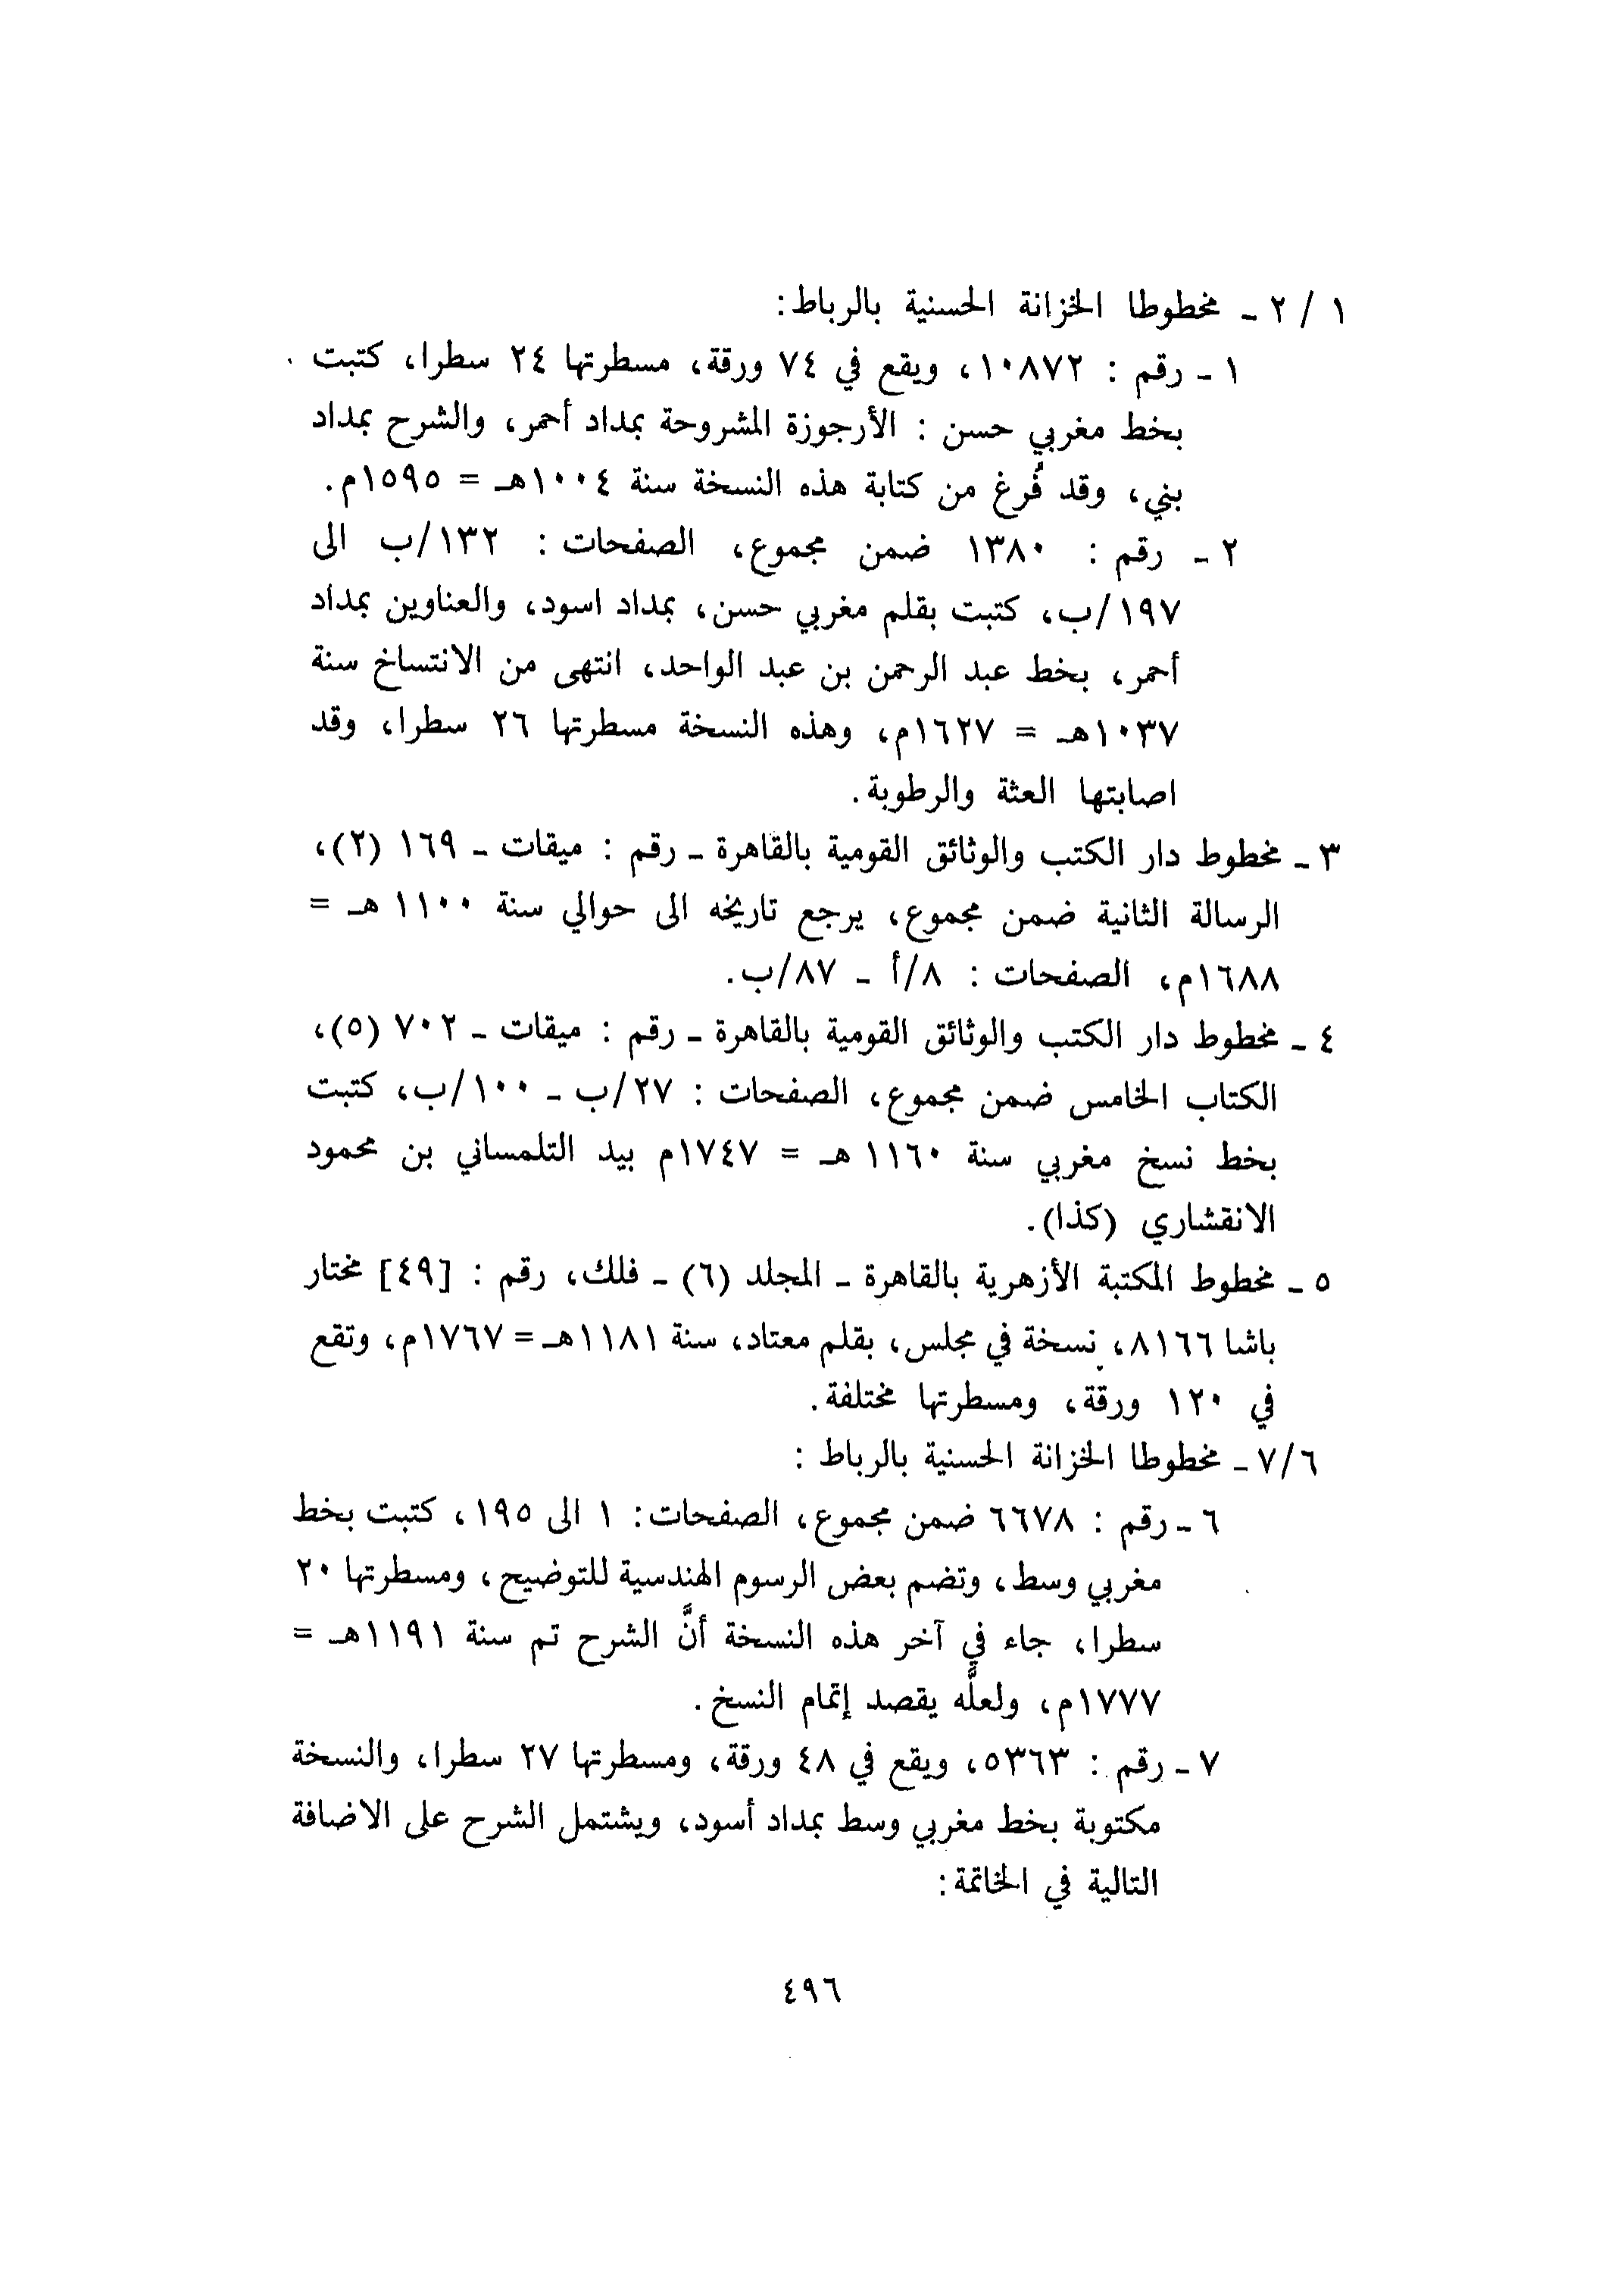 ١ / ٢ ـ مخطوطا الخزانة الحسنية بالرباط:
١ ـ رقم : ١٠٨٧٢، ويقع في ٧٤ ورقة، مسطرتها ٢٤ سطرا، كتبت
بخط مغربي حسن : الأرجوزة المشروحة بمداد أحمر، والشرح بمداد
بني، وقد فُرغ من كتابة هذه النسخة سنة ١٠٠٤هـ = ١٥٩٥م.
٢ ـ رقم : ١٣٨٠ ضمن مجموع، الصفحات : ١٣٢/ب الى
١٩٧/ب، كتبت بقلم مغربي حسن، بمداد اسود، والعناوين بمداد
أحمر، بخط عبد الرحمن بن عبد الواحد، انتهى من الانتساخ سنة
١٠٣٧هـ = ١٦٢٧م، وهذه النسخة مسطرتها ٢٦ سطرا، وقد
اصابتها العثة والرطوبة.
٣ ـ مخطوط دار الكتب والوثائق القومية بالقاهرة ـ رقم : ميقات ـ ١٦٩ (٢)،
الرسالة الثانية ضمن مجموع، يرجع تاريخه الى حوالي سنة ١١٠٠ هـ =
١٦٨٨م، الصفحات : ٨/أ ـ ٨٧/ب.
٤ ـ مخطوط دار الكتب والوثائق القومية بالقاهرة ـ رقم : ميقات ـ ٧٠٢ (٥)،
الكتاب الخامس ضمن مجموع، الصفحات : ٢٧/ب ـ ١٠٠/ب، كتبت
بخط نسخ مغربي سنة ١١٦٠ هـ = ١٧٤٧م بيد التلمساني بن محمود
الانقشاري (كذا).
٥ ـ مخطوط المكتبة الأزهرية بالقاهرة ـ المجلد (٦) ـ فلك، رقم : [٤٩] مختار
باشا ٨١٦٦، نسخة في مجلس، بقلم معتاد، سنة ١١٨١هـ = ١٧٦٧م، وتقع
في ١٢٠ ورقة، ومسطرتها مختلفة.
٧/٦ ـ مخطوطا الخزانة الحسنية بالرباط :
٦ ـ رقم : ٦٦٧٨ ضمن مجموع، الصفحات: ١ الى ١٩٥، كتبت بخط
مغربي وسط، وتضم بعض الرسوم الهندسية للتوضيح، ومسطرتها ٢٠
سطرا، جاء في آخر هذه النسخة أنَّ الشرح تم سنة ١١٩١هـ =
١٧٧٧م، ولعلَّه يقصد إتمام النسخ.
٧ ـ رقم : ٥٣٦٣، ويقع في ٤٨ ورقة، ومسطرتها ٢٧ سطرا، والنسخة
مكتوبة بخط مغربي وسط بمداد أسود، ويشتمل الشرح على الاضافة
التالية في الخاتمة:
٤٩٦